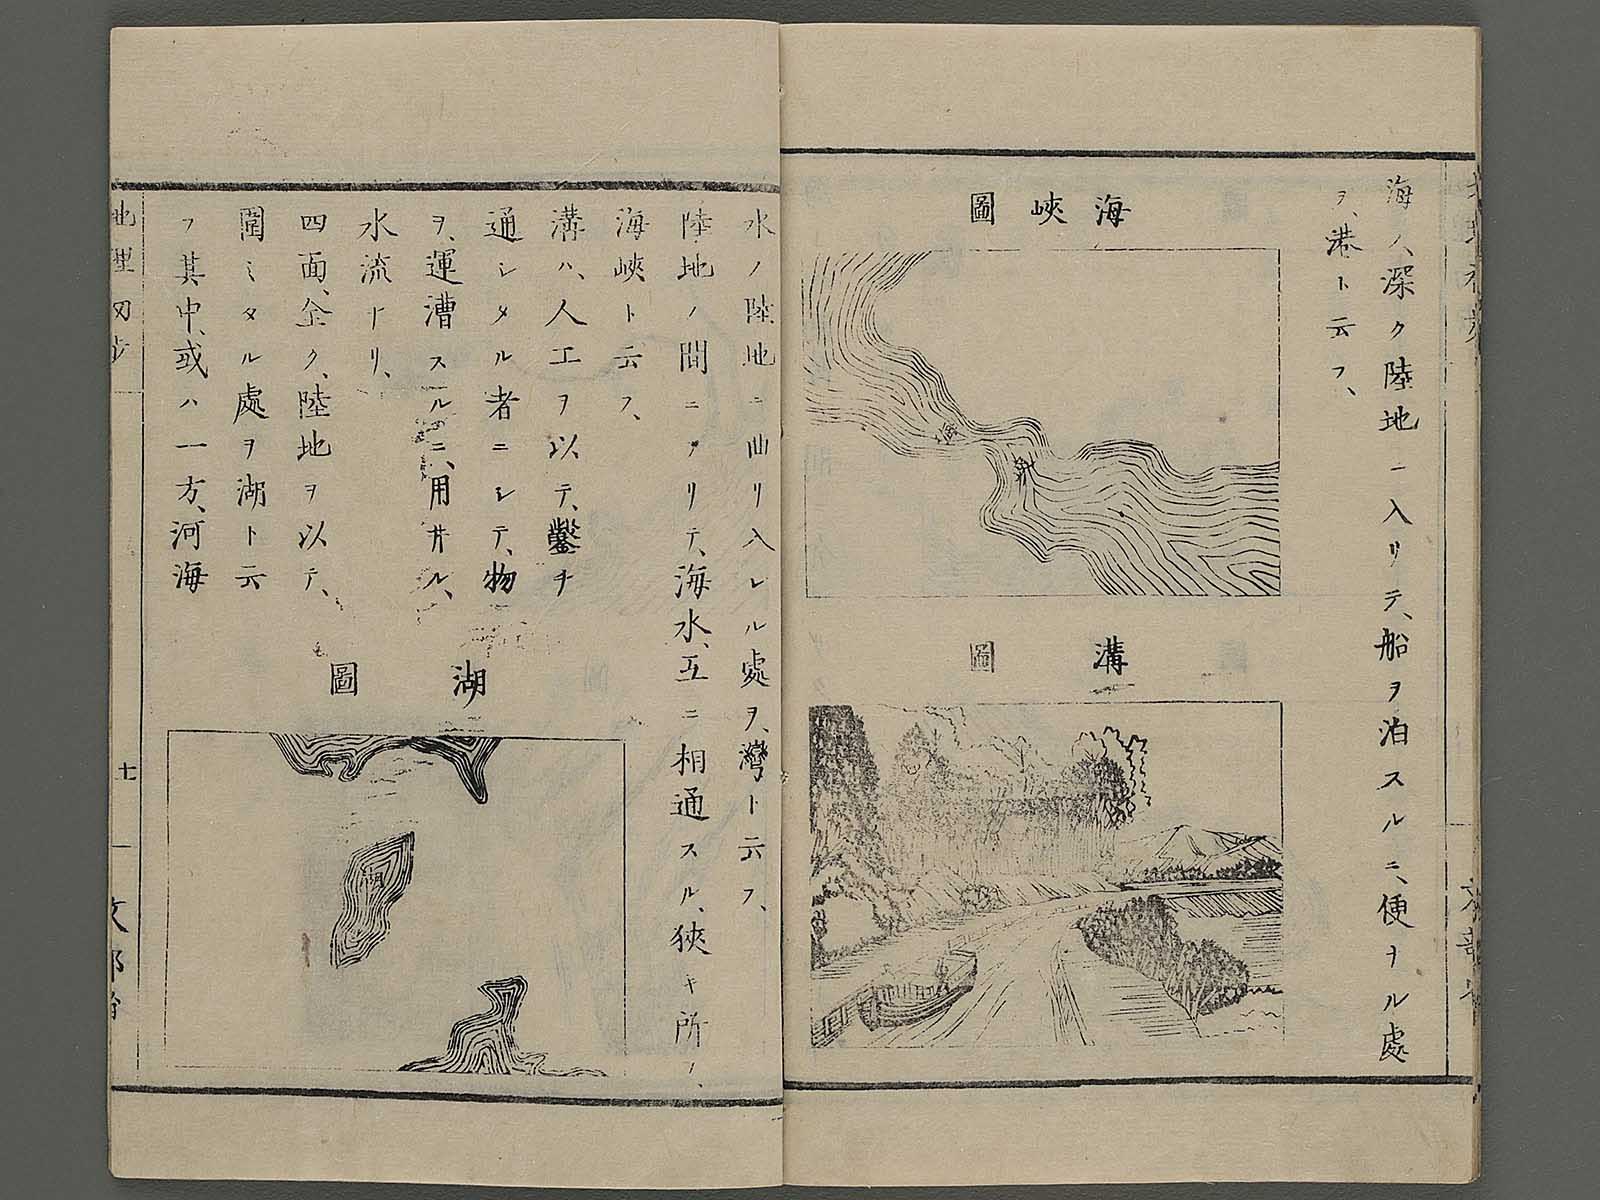 海ノ、深ク陸地ニ入リテ、船ヲ泊スルニ、便ナル處
ヲ、港ト云フ、
海峽圖
海
峽
溝圖
水ノ陸地ニ曲リ入レル處ヲ、灣ト云フ、
陸地ノ間ニアリテ、海水、互ニ相通スル、狹キ所ヲ、
海峽ト云フ、
溝ハ、人工ヲ以テ、鑿チ
通シタル者ニシテ、物
ヲ、運漕スルニ、用井ル、
水流ナリ、
四面、全ク、陸地ヲ以テ、
圍ミタル處ヲ湖ト云
フ其中、或ハ一方、河海
湖圖
湖
地理初步
十一
文部省